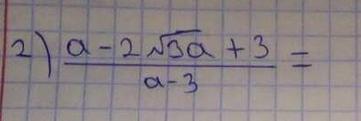 2) \frac{a - 2\sqrt{3a} + 3}{a - 3} =